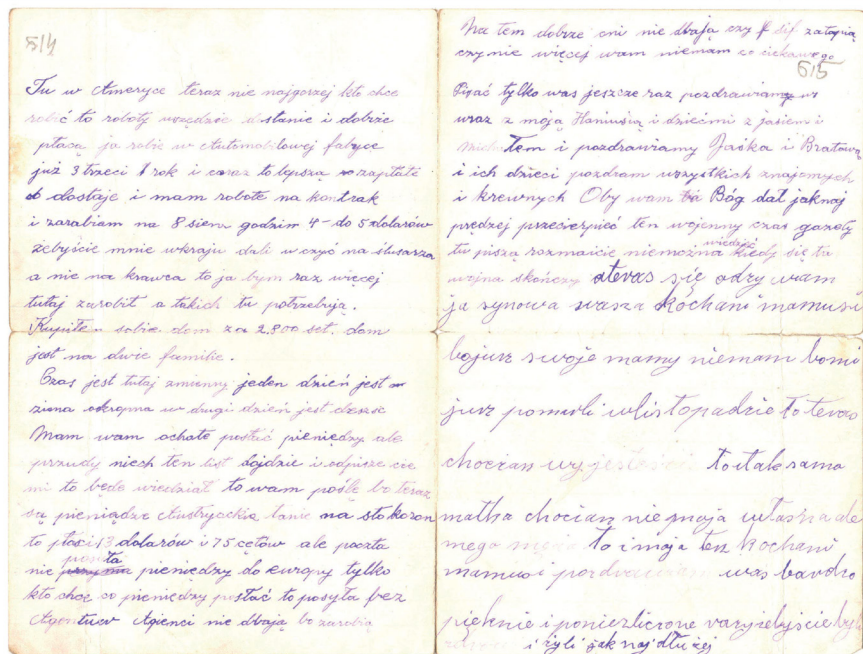 514
Tu w Ameryce teraz nie najgorzej kto chce
robić to roboty wszędzie dostanie i dobrze
płacą ja robie w Automobilowej fabryce
już 3 trzeci rok i coraz to lepsza zapłate
dostaje i mam robote na kontrak
i zarabiam na 8 siem godzim 4- do 5 dolarów
żebyście mnie wkraju dali w czyć na ślusarza
a nie na krawca to ja bym raz więcej
tutaj zarobił a takich tu potrzebują.
Kupiłem sobie dom za 2,800 set. dom
jest na dwie familie.
Czas jest tutaj zmunny jeden dzień jest
zima okropma w drugi dzień jest deszć
Mam wam ochote posłać pieniędzy ale
przudy niech ten list dojdzie i odpisze cie
mi to bede wiedział to wam poślę bo teraz
są pieniądze Austryackie tanie na sto koron
to płaci 13 dolarów i 75 cętów ale poczta
nie posyła pieniędzy do europy tylko
kto chce co pieniędzy posłać to posyła bez
Agentuw Agienci nie dbają bo zarobią
Na tem dobrze oni nie dbają czy sif zatopią
czy nie więcej wam niemam co ciekawego
515
Pisać tylko was jeszcze raz pozdrawiam
wraz z moją Haniusią i dziećmi z jasiem i
Michałem i pozdrawiamy Jaśka i Bratową
i ich dzieci pozdram wszystkich znajomych
i krewnych Oby wam Bóg dał jaknaj
prędzej przecierpieć ten wojenny czas gazety
tu piszą rozmaicie niemożna wiedzieć kiedy się ta
wojna skończy ateras się odzywam
ja synowa wasza Kochani mamusi
bojusz swoje mamy niemam bomi
jusz pomerli wlistopadzie to teras
chocian wy jesteście to itak sama
matka chocian nie moja własna ale
mego męża to i moja tesz Kochani
mamusi pozdrawiam was bardzo
pięknie i poniezliczone razy żebyście byli
zdrowi i żyli jak najdłużej